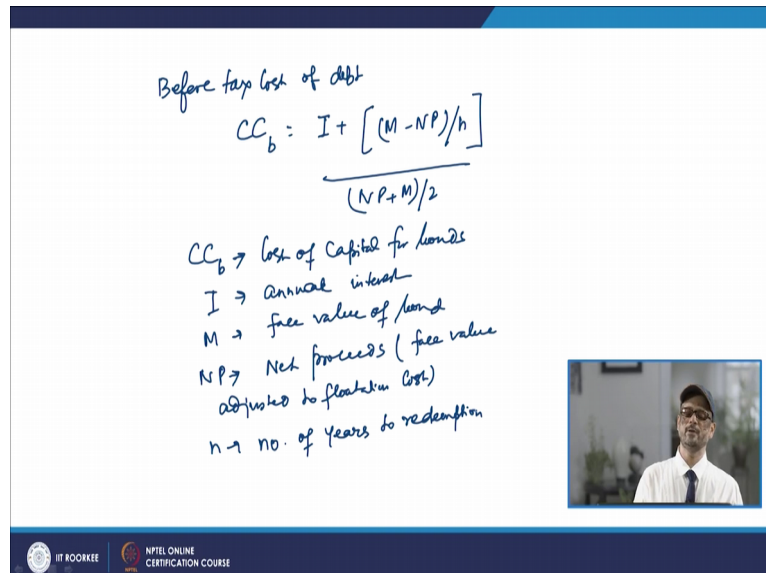 Before tax Cost of debt
CC_b = I + [(M - NP)/n]
(NP + M)/2
CC_b → Cost of Capital for bonds
I → annual interest
M → face value of bond
NP → Net proceeds (face value
adjusted to floatation cost)
n → no. of years to redemption
IIT ROORKEE
NPTEL ONLINE
CERTIFICATION COURSE